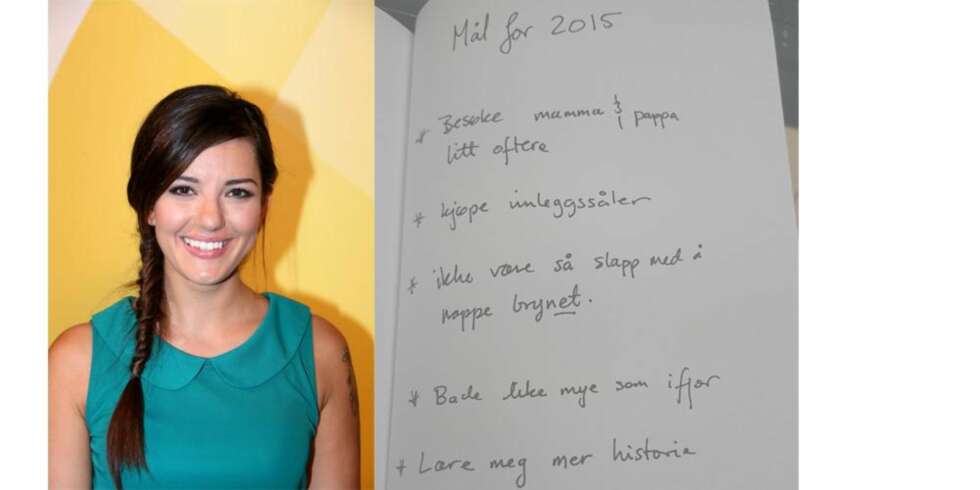 Mål for 2015
* Besøke mamma & pappa
litt oftere
* kjøpe innleggssåler
* ikke være så slapp med å
nappe brynet.
* Bade like mye som ifjor
* Lære meg mer historie